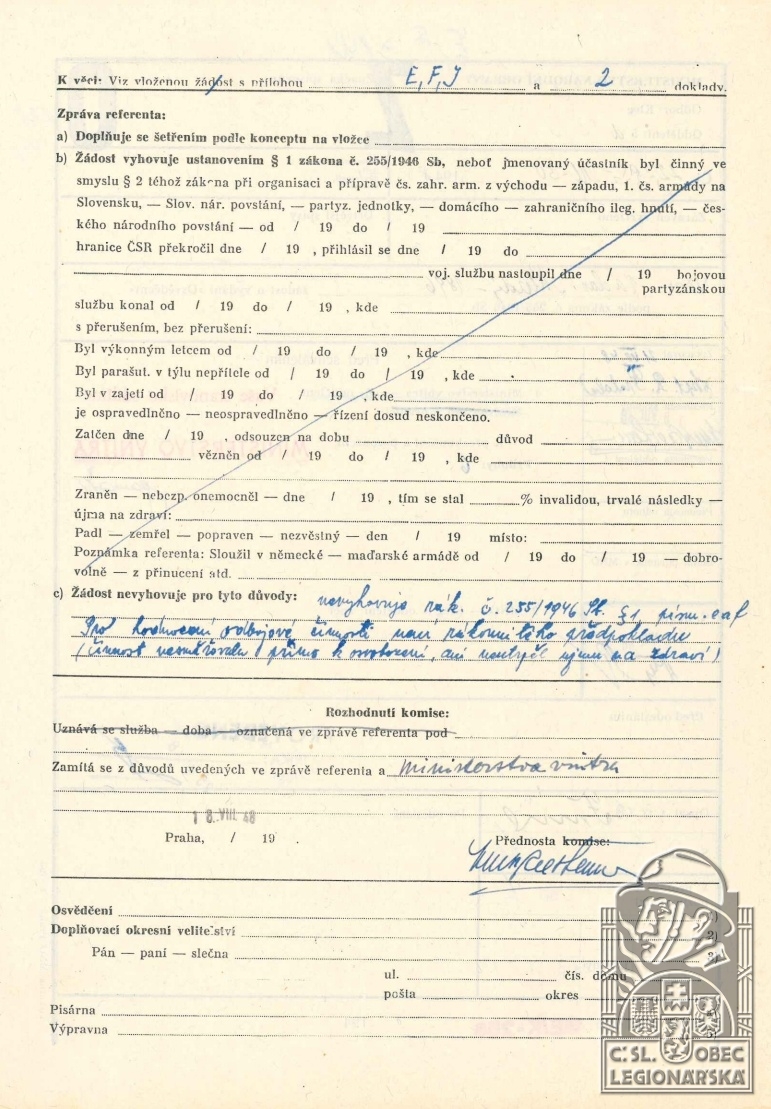 K věci: Viz vloženou žádost s přílohou E, F, J a 2 doklady.
Zpráva referenta:
a) Doplňuje se šetřením podle konceptu na vložce
b) Žádost vyhovuje ustanovením § 1 zákona č. 255/1946 Sb, neboť jmenovaný účastník byl činný ve
smyslu § 2 téhož zákona při organisaci a přípravě čs. zahr. arm. z východu — západu, 1. čs. armády na
Slovensku, — Slov. nár. povstání, — partyz. jednotky, — domácího — zahraničního ileg. hnutí, — čes-
kého národního povstání — od / 19 do / 19
hranice ČSR překročil dne / 19 , přihlásil se dne / 19 do
voj. službu nastoupil dne / 19 bojovou
partyzánskou
službu konal od / 19 do / 19 , kde
s přerušením, bez přerušení:
Byl výkonným letcem od / 19 do / 19 , kde
Byl parašut. v týlu nepřítele od / 19 do / 19 , kde
Byl v zajetí od / 19 do / 19 , kde
je ospravedlněno — neospravedlněno — řízení dosud neskončeno.
Zatčen dne / 19 , odsouzen na dobu důvod
vězněn od / 19 do / 19 , kde
Zraněn — nebezp. onemocněl — dne / 19 , tím se stal % invalidou, trvalé následky —
újma na zdraví:
Padl — zemřel — popraven — nezvěstný — den / 19 místo:
Poznámka referenta: Sloužil v německé — maďarské armádě od / 19 do / 19 — dobro-
volně — z přinucení atd.
c) Žádost nevyhovuje pro tyto důvody: nevyhovuje zák. č. 255/1946 Sb. § 1 písm. e a f
odbojové činnosti není zákonného předpokladu
(činnost nesměřovala přímo k osvobození, ani neutrpěl újmu na zdraví)
Rozhodnutí komise:
Uznává se služba — doba — označená ve zprávě referenta pod
Zamítá se z důvodů uvedených ve zprávě referenta a Ministerstva vnitra
1 8. VIII. 48
Praha, / 19 .
Přednosta komise:
Osvědčení 1)
Doplňovací okresní velitelství 2)
Pán — paní — slečna 3)
ul. čís. domu
pošta okres
Pisárna
Výpravna
ČSL. OBEC
LEGIONÁŘSKÁ